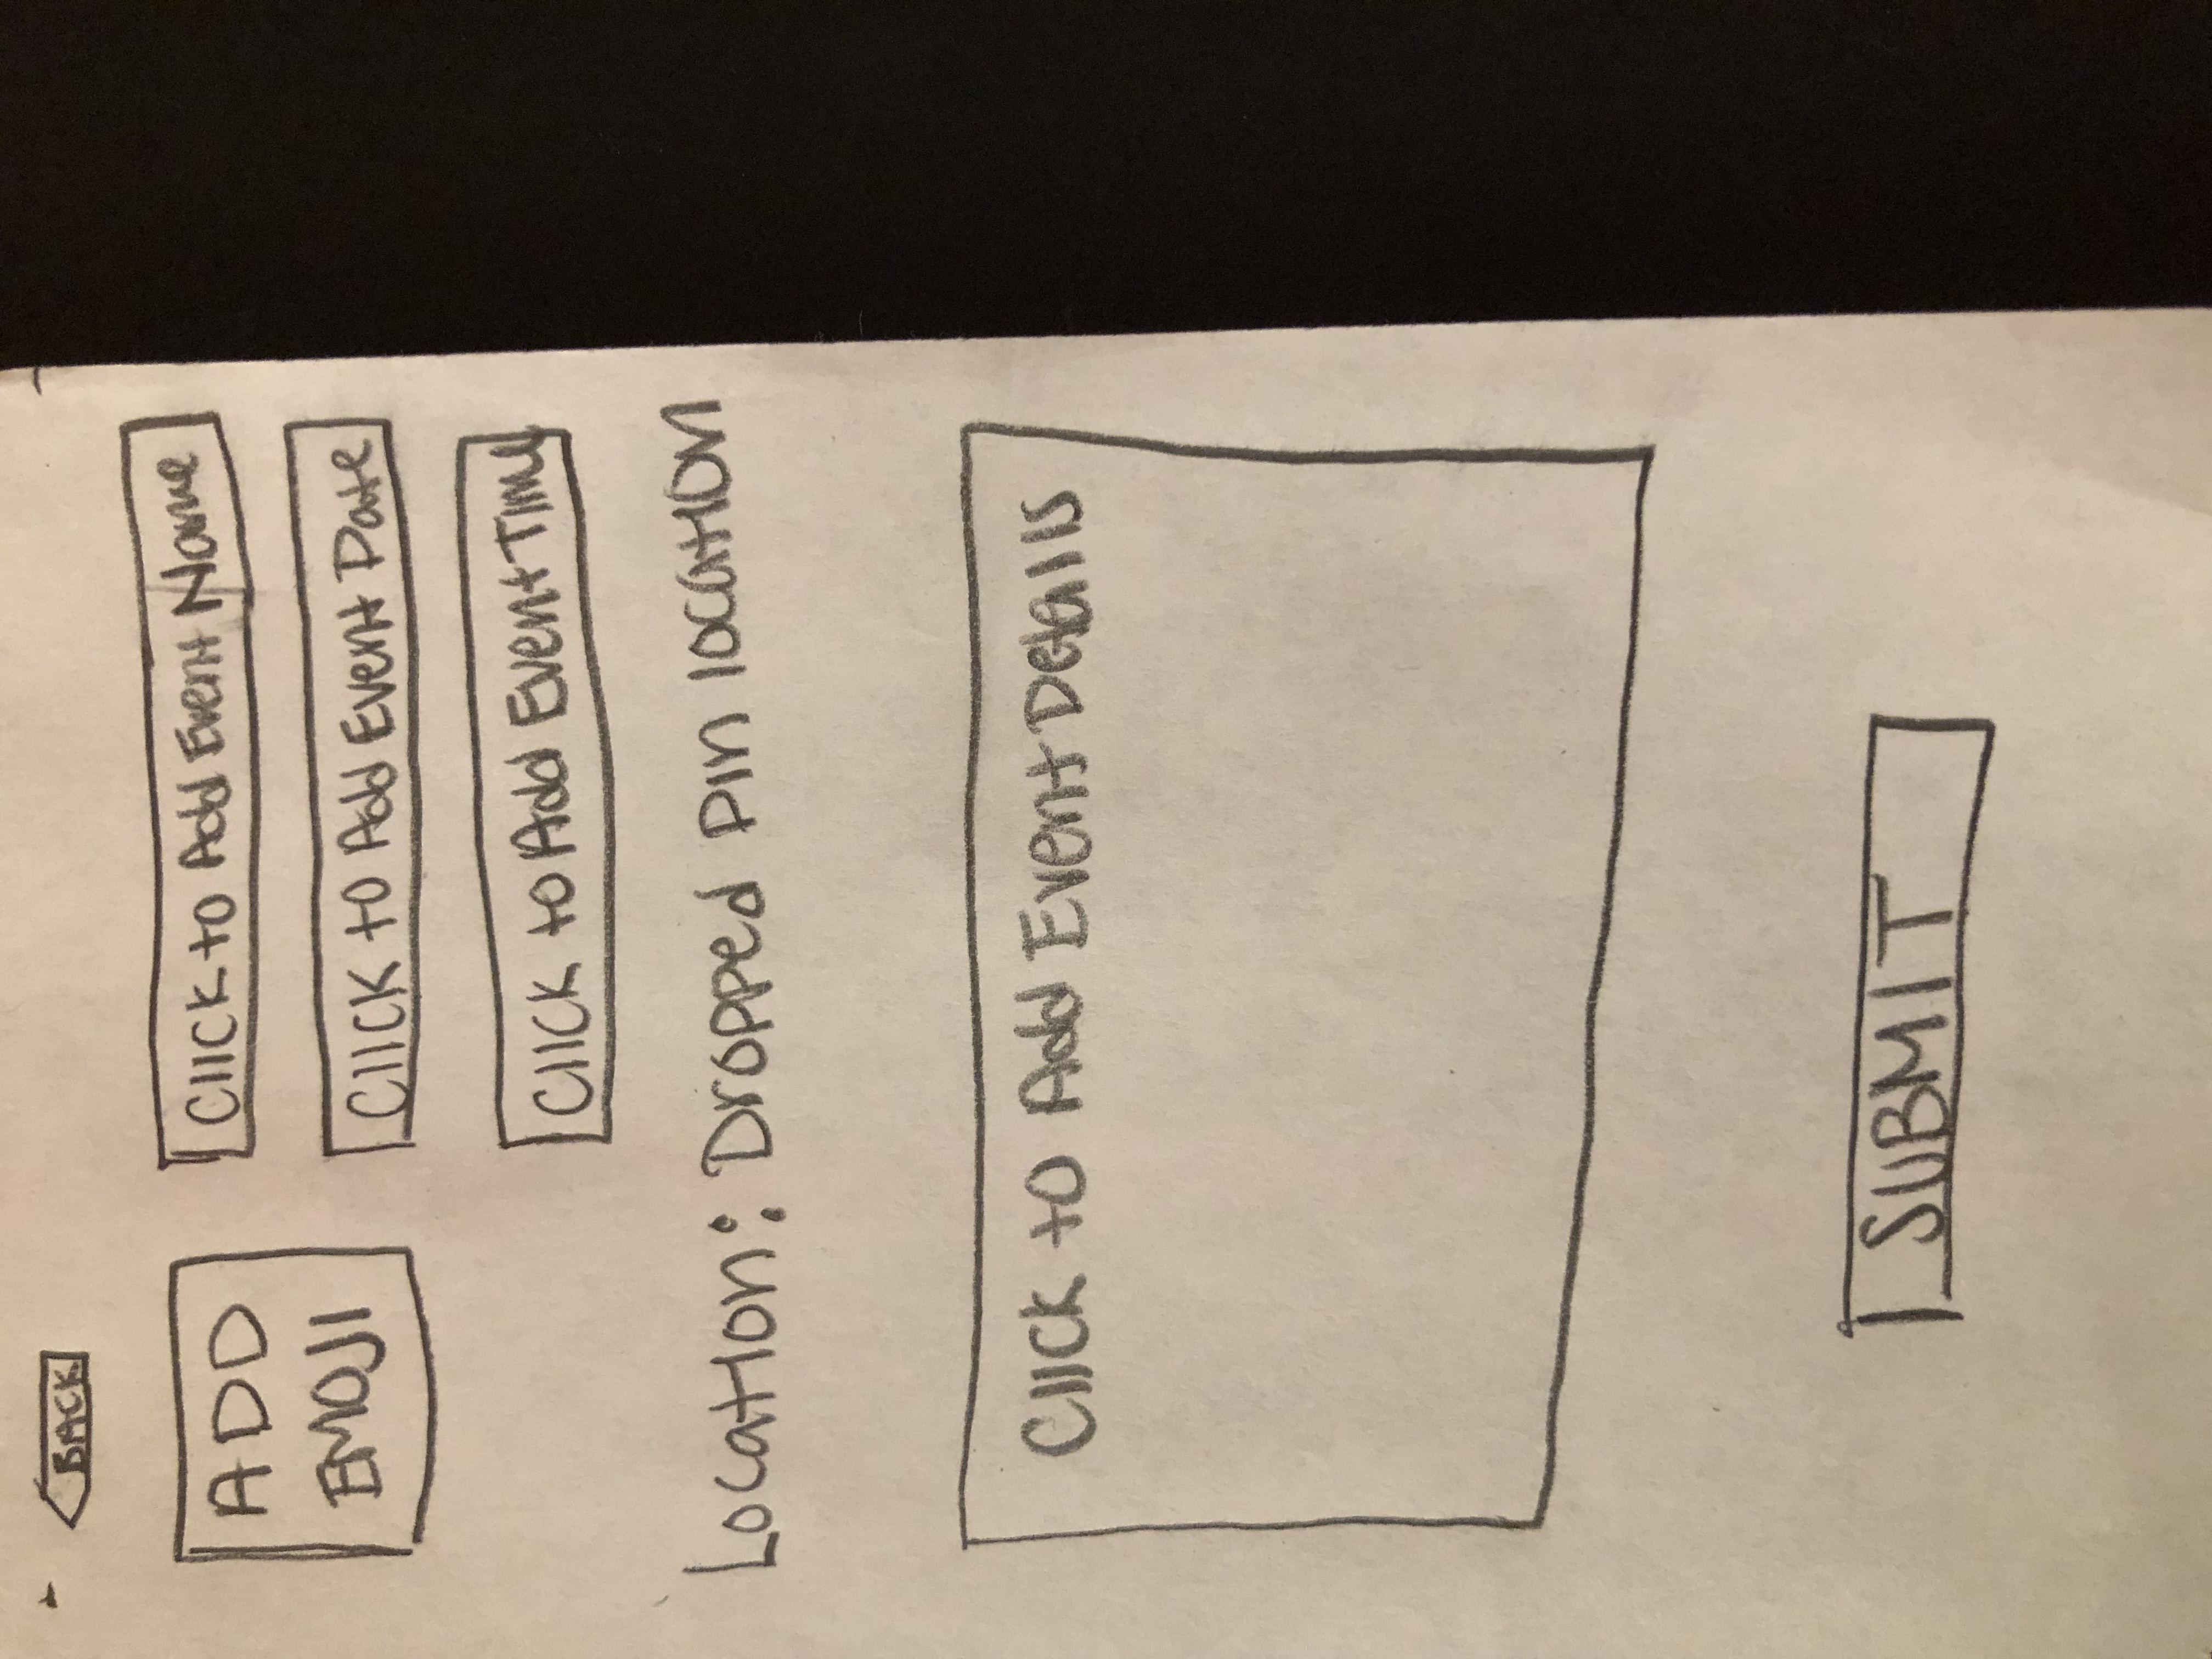 BACK
ADD
EMOJI
Click to Add Event Name
Click to Add Event Date
Click to Add Event Time
Location: Dropped pin location
Click to Add Event Details
SUBMIT